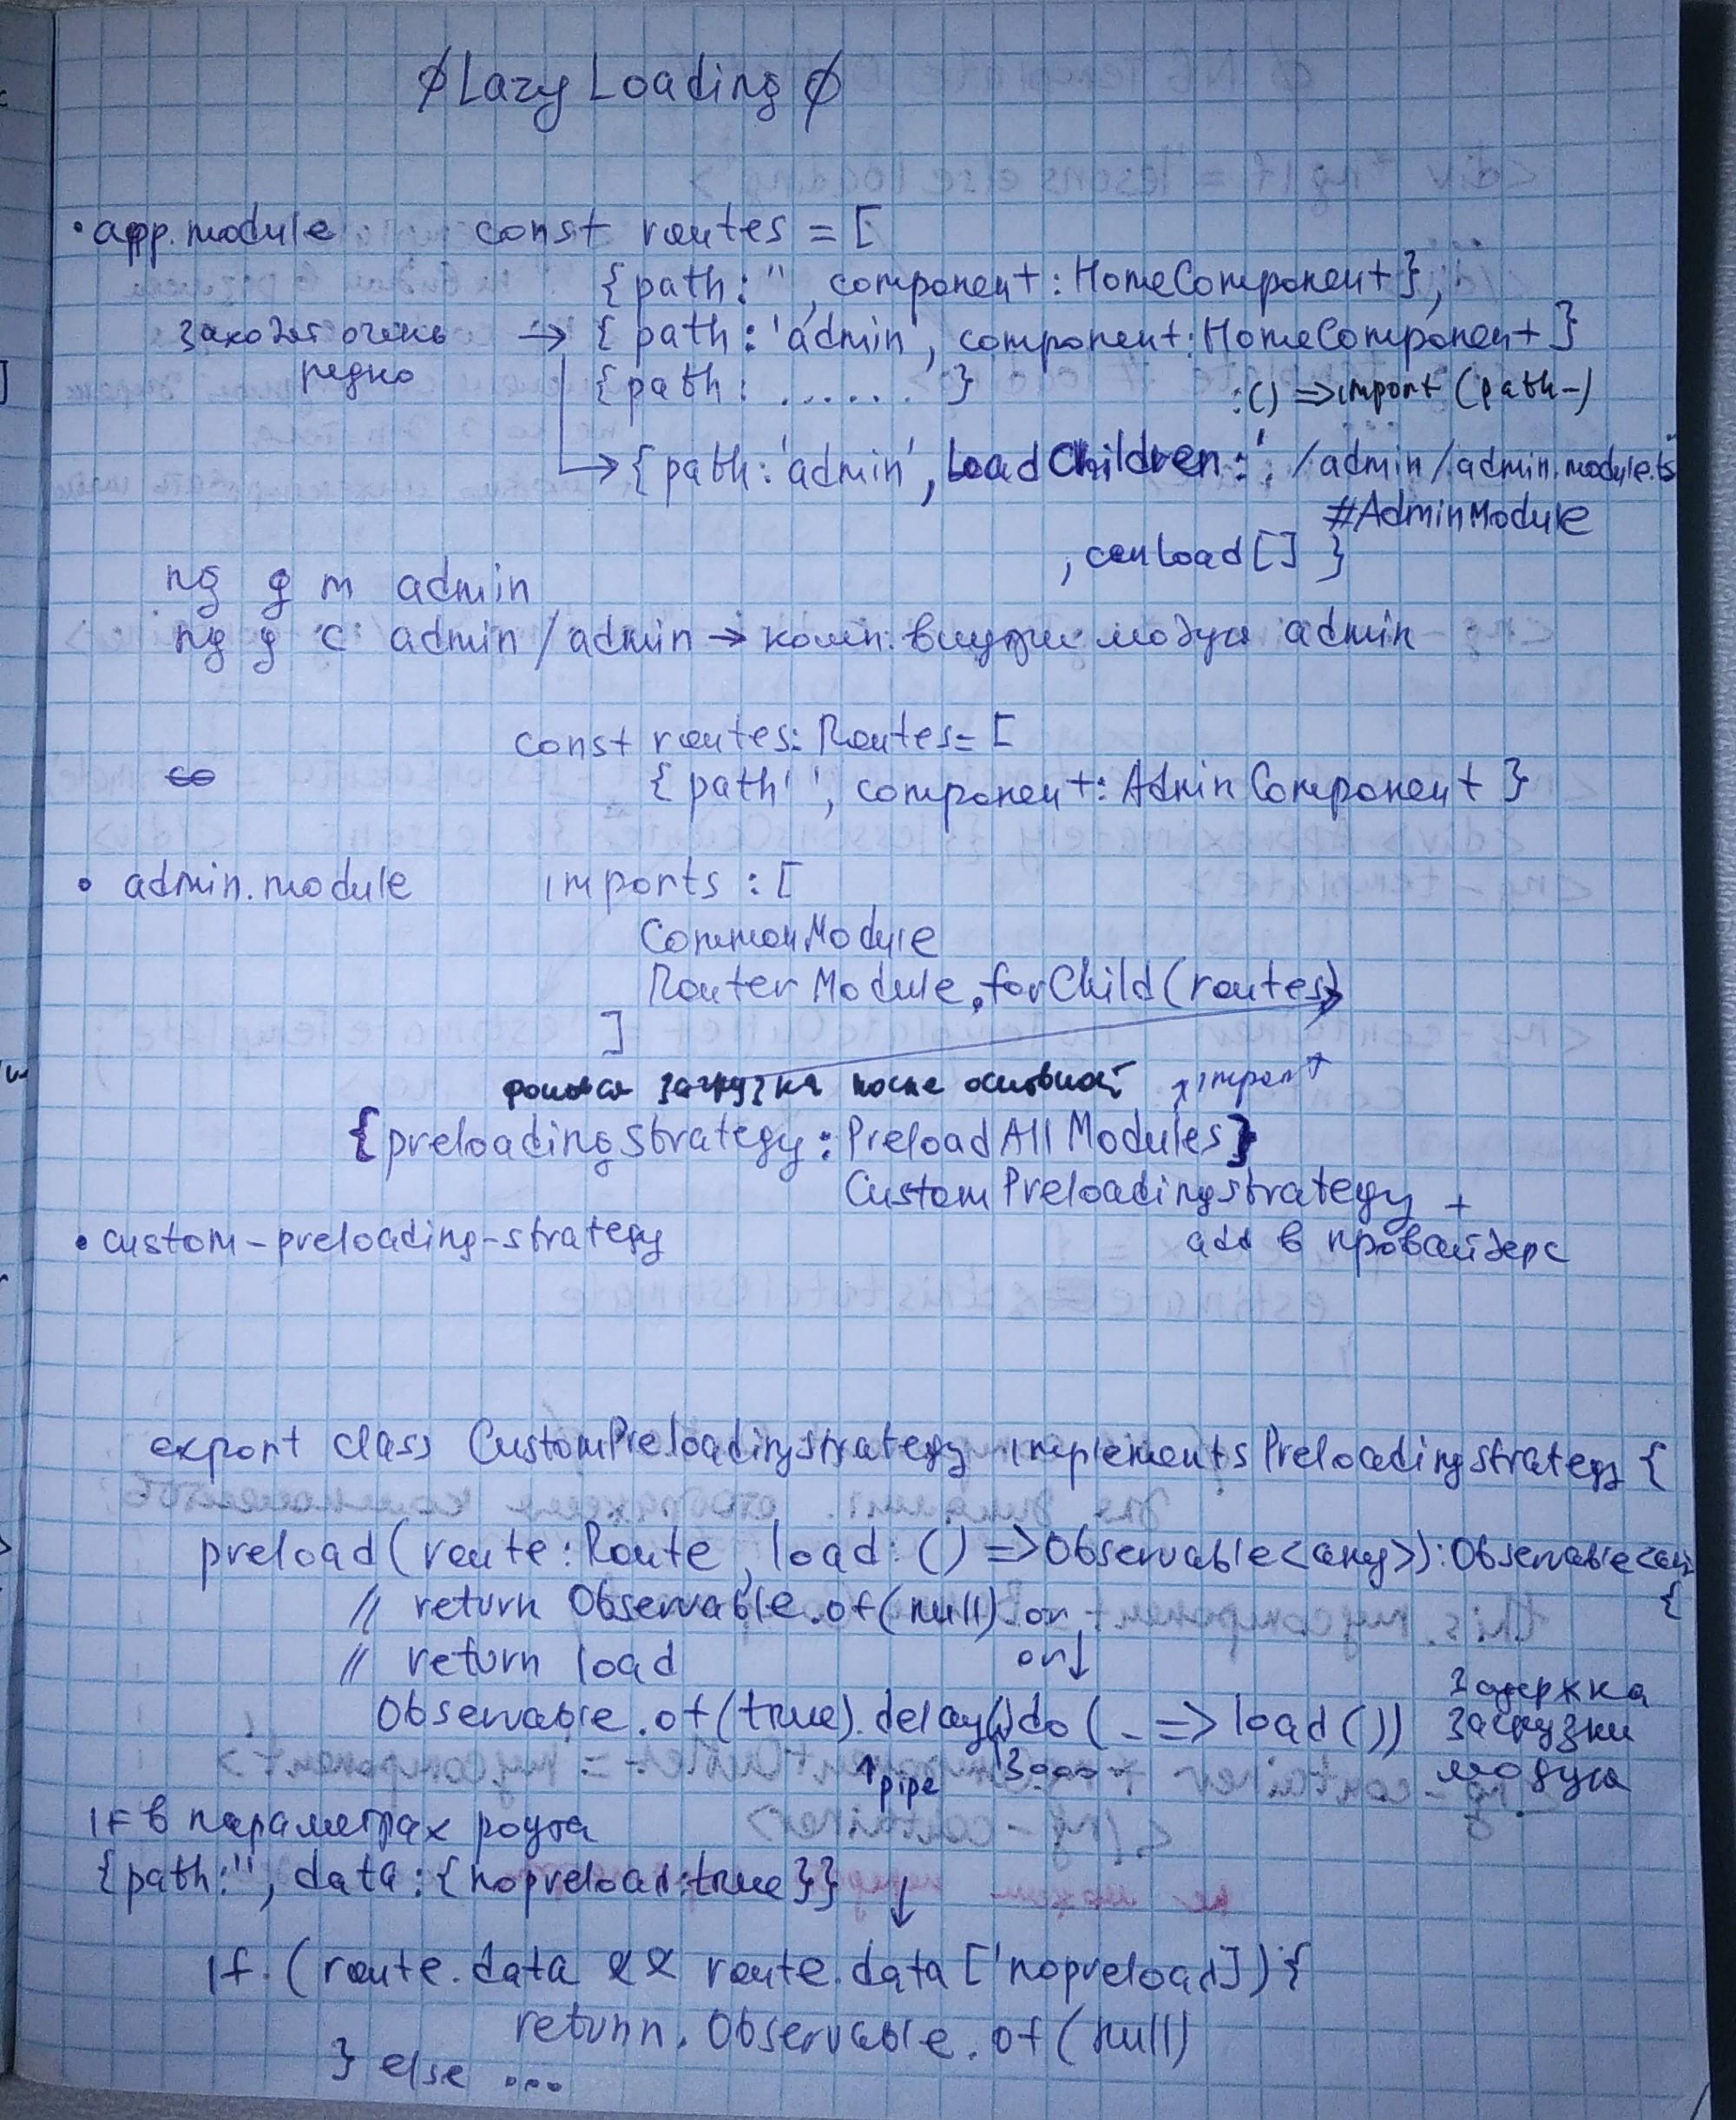 ∅ Lazy Loading ∅
• app.module const routes = [
{path:'', component: HomeComponent},
заходят очень редко → {path:'admin', component: HomeComponent}
{path: ...... }
: () => import (path-)
→ {path:'admin', loadChildren: './admin/admin.module.ts
#AdminModule
, canLoad [] }
ng g m admin
ng g c admin/admin → комп. внутри модуля admin
const routes: Routes = [
{path '', component: AdminComponent }
• admin.module imports : [
CommonModule
RouterModule.forChild(routes)
]
фоновая загрузка после основной ↑ import
{preloadingStrategy: PreloadAllModules}
CustomPreloadingStrategy +
add в провайдерс
• custom-preloading-strategy
export class CustomPreloadingStrategy implements PreloadingStrategy {
preload(route: Route, load: () => Observable<any>): Observable<any
{
// return Observable.of(null) or
// return load or ↓
Observable.of(true).delay().do(_ => load())
↑ pipe 3000
Задержка
загрузки
модуля
If в параметрах роута
{path:'', data: {nopreload:true}} ↓
if (route.data && route.data ['nopreload]) {
return Observable.of(null)
} else ...